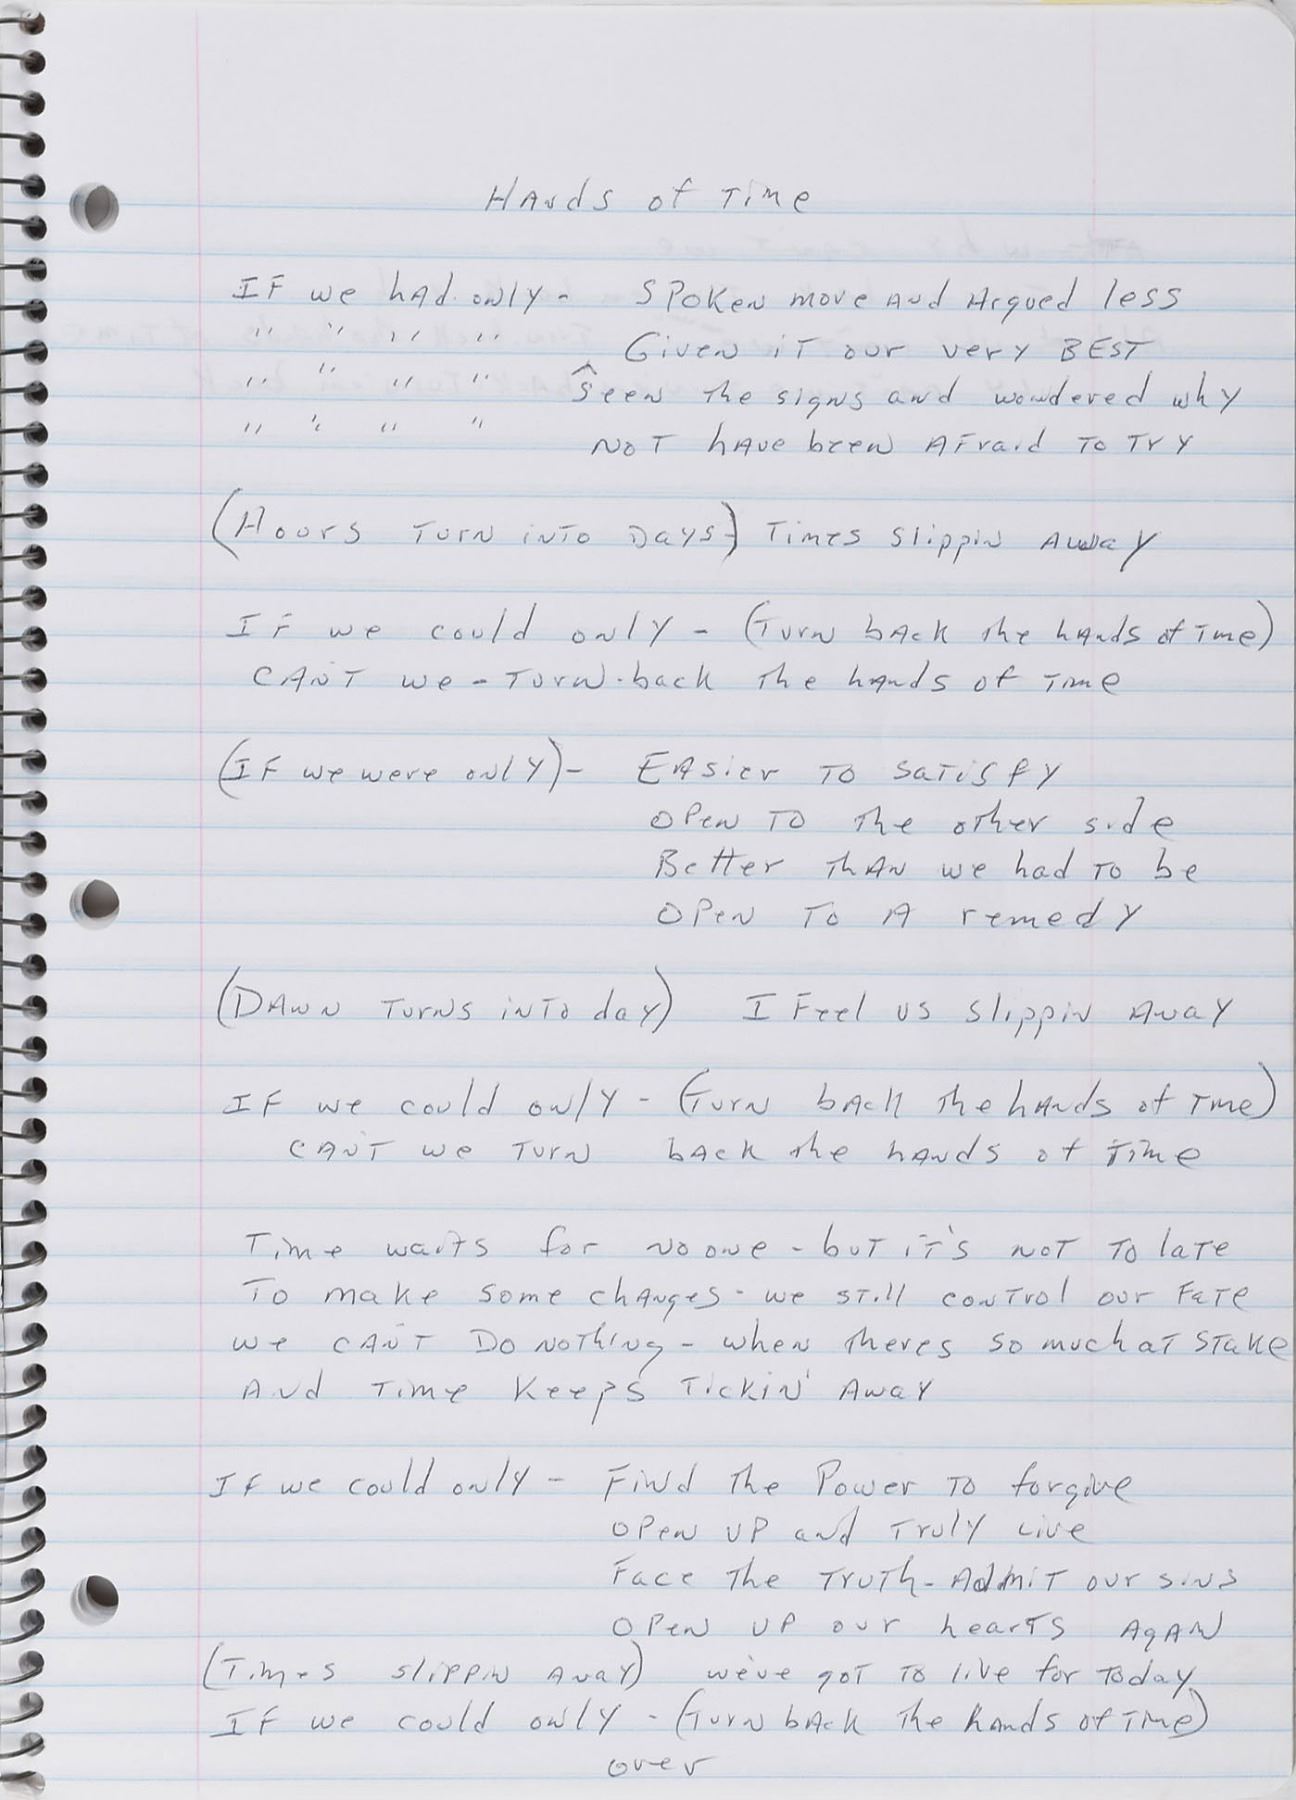 Hands of Time
If we had only - Spoken more and Argued less
" " " " Given it our very BEST
" " " " Seen the signs and wondered why
" " " " Not have been Afraid to try
(Hours turn into Days) Times slippin Away
If we could only - (Turn back the hands of Time)
Can't we - turn back the hands of Time
(If we were only) - Easier to satisfy
Open to the other side
Better than we had to be
Open to A remedy
(Dawn turns into day) I Feel us slippin Away
If we could only - (Turn back the hands of Time)
Can't we turn back the hands of Time
Time waits for no one - but it's not to late
To make some changes - we still control our Fate
we can't Do nothing - when theres so much at stake
And time keeps tickin' Away
If we could only - Find the Power to forgive
Open up and truly Live
Face the truth - Admit our sins
Open up our hearts Again
(Times slippin Away) we've got to live for today
If we could only - (Turn back the hands of Time)
over